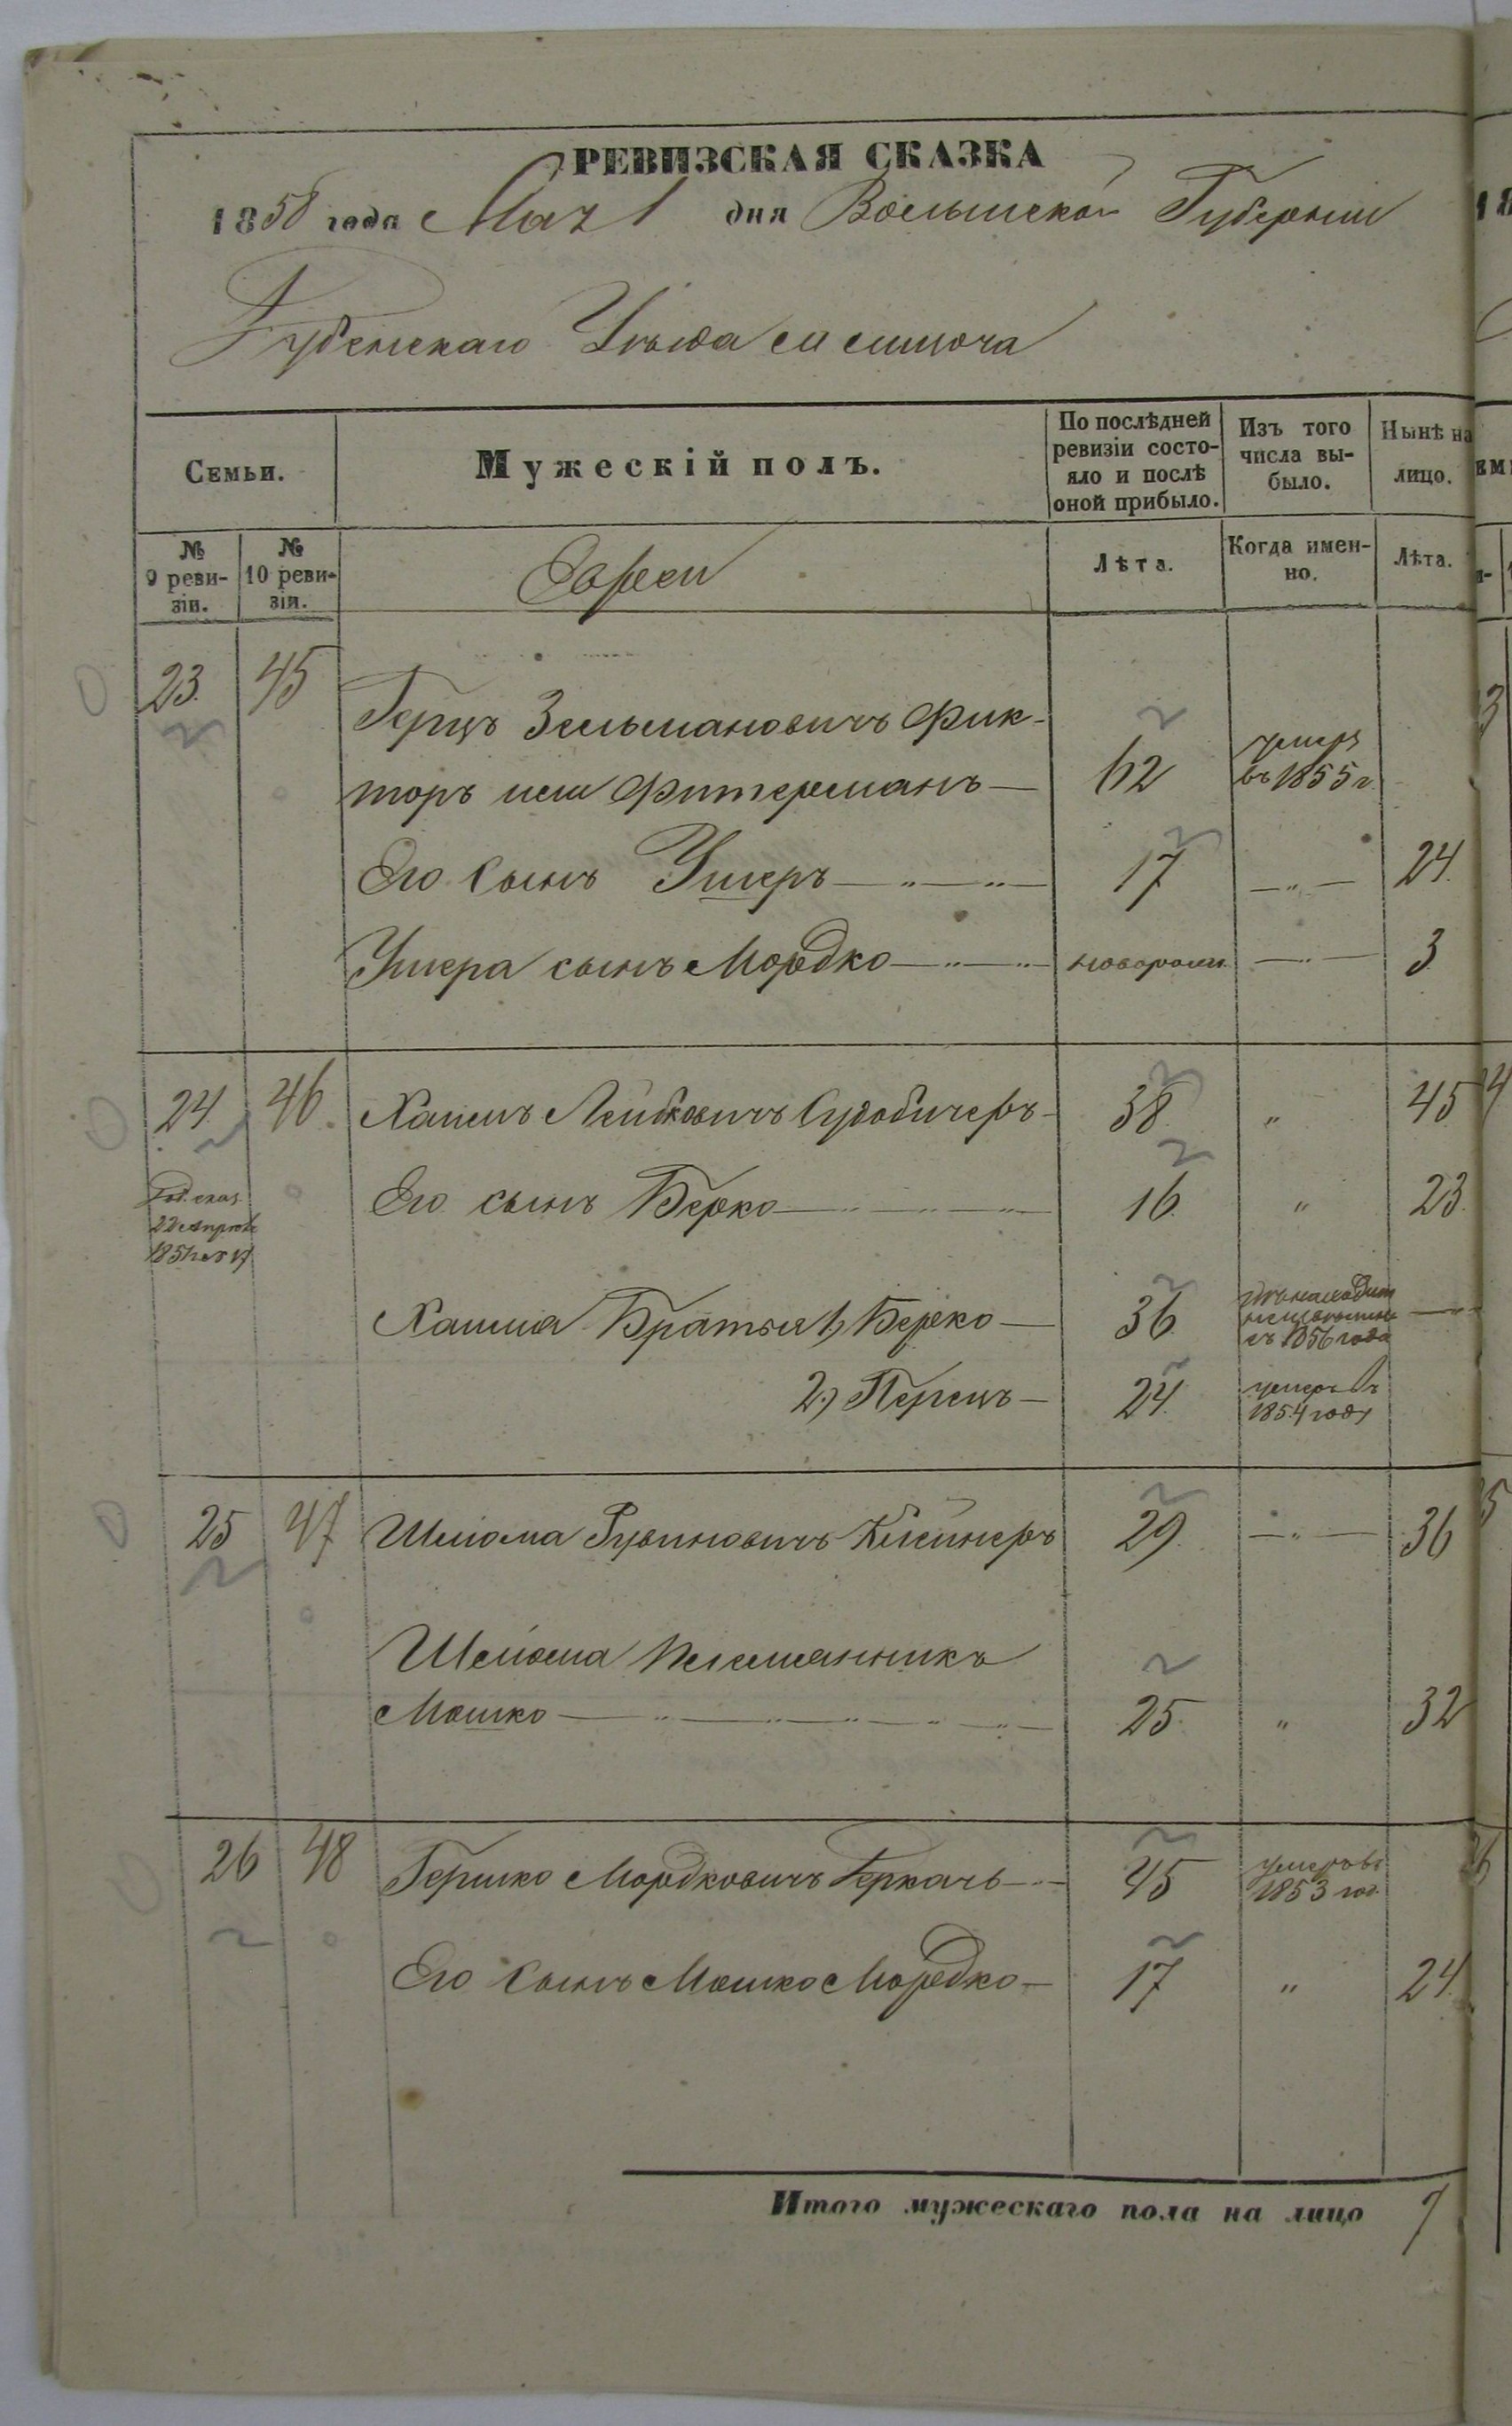 РЕВИЗСКАЯ СКАЗКА
1858 года Мая 1 дня Волынской Губернии
Дубенскаго Уѣзда м
Семьи.
Мужескій полъ.
По послѣдней ревизіи состо-
яло и послѣ
оной прибыло.
Изъ того
числа вы-
было.
Нынѣ на
лицо.
№
9 реви-
зіи.
№
10 реви-
зіи.
Евреи
Лѣта.
Когда имен-
но.
Лѣта.
23. 45 Герцъ Зельмановичъ Фик-
торъ или Фитерманъ — 62 умеръ въ 1855 г.
Его сынъ Ушеръ — " — " — 17 — " — 24.
Ушера сынъ Мордко — " — " новорожд. — " — 3
24. 46. Хаимъ Лейбовичъ 38. " 45
22 Апрѣля
Его сынъ Берко — " — " — " — 16. " 23.
Хаима Братья 1, Берко — 36. съ 1856 года — "
2,) Перецъ — 24. умеръ въ 1854 году
25 47 Шлиома Рувиновичъ Клейнеръ 29. — " — 36
Шлиома племянникъ
Мошко — " — " — " — " — " — 25. " 32
26 48 Гершко Мордковичъ Геркачь — " — 45 умеръ въ 1853 год.
Его сынъ Мошко Мордко — 17 " 24.
Итого мужескаго пола на лицо 7